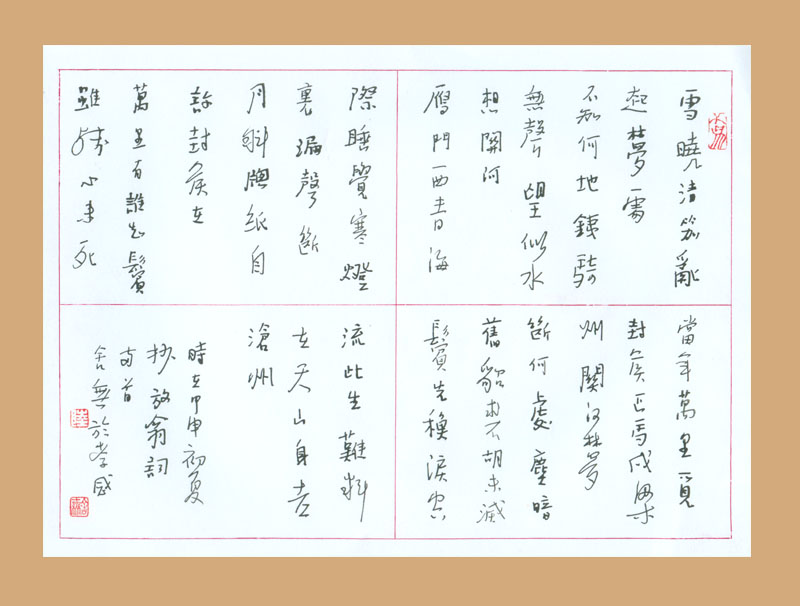 雪曉清笳亂
起夢處
不知何地鐵騎
無聲望似水
想關河
雁門西青海
際睡覺寒燈
裏漏聲斷
月斜牕紙自
許封侯在
萬里有誰知鬢
雖殘心未死
當年萬里覓
封侯匹馬戍梁
州關河夢
斷何處塵暗
舊貂裘胡未滅
鬢先穐淚空
流此生難料
在天山身老
滄州
時在甲申初夏
抄放翁詞
兩首
無於孝感